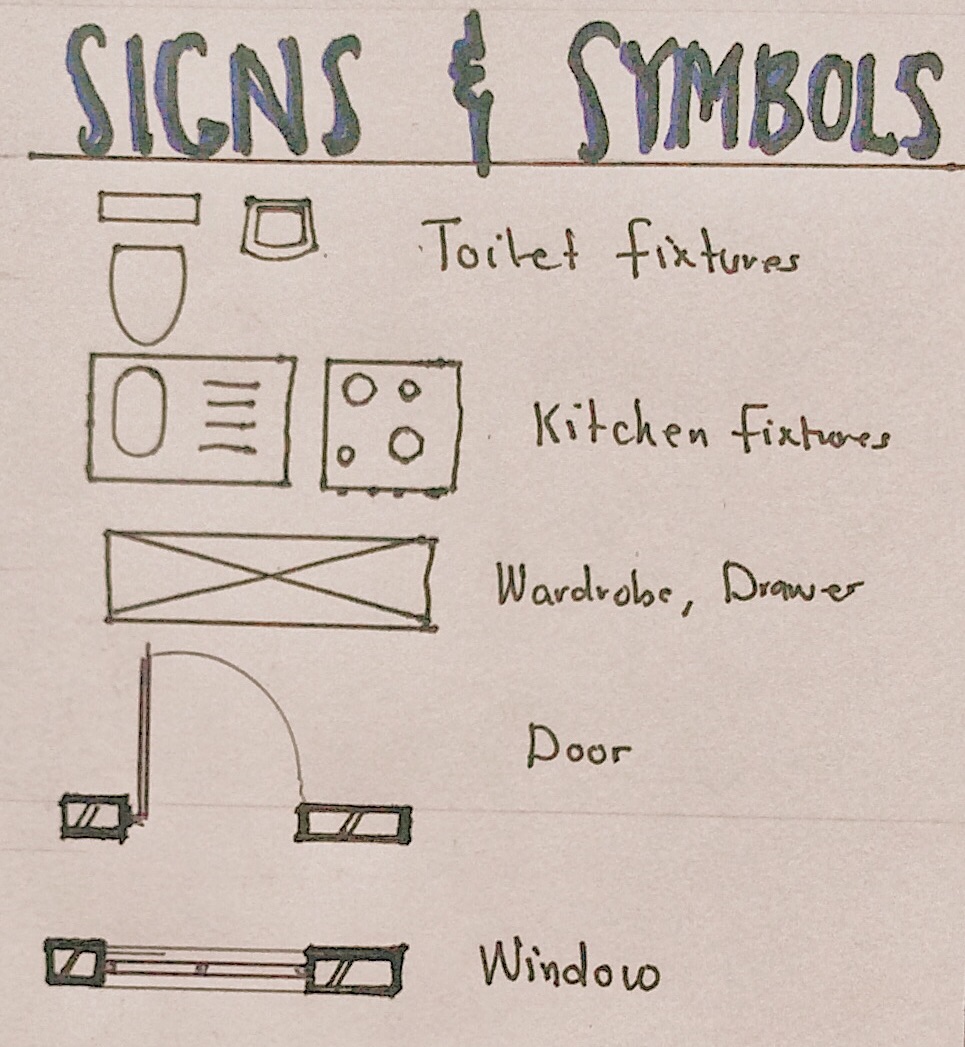 SIGNS & SYMBOLS
Toilet fixtures
Kitchen fixtures
Wardrobe, Drawer
Door
Window